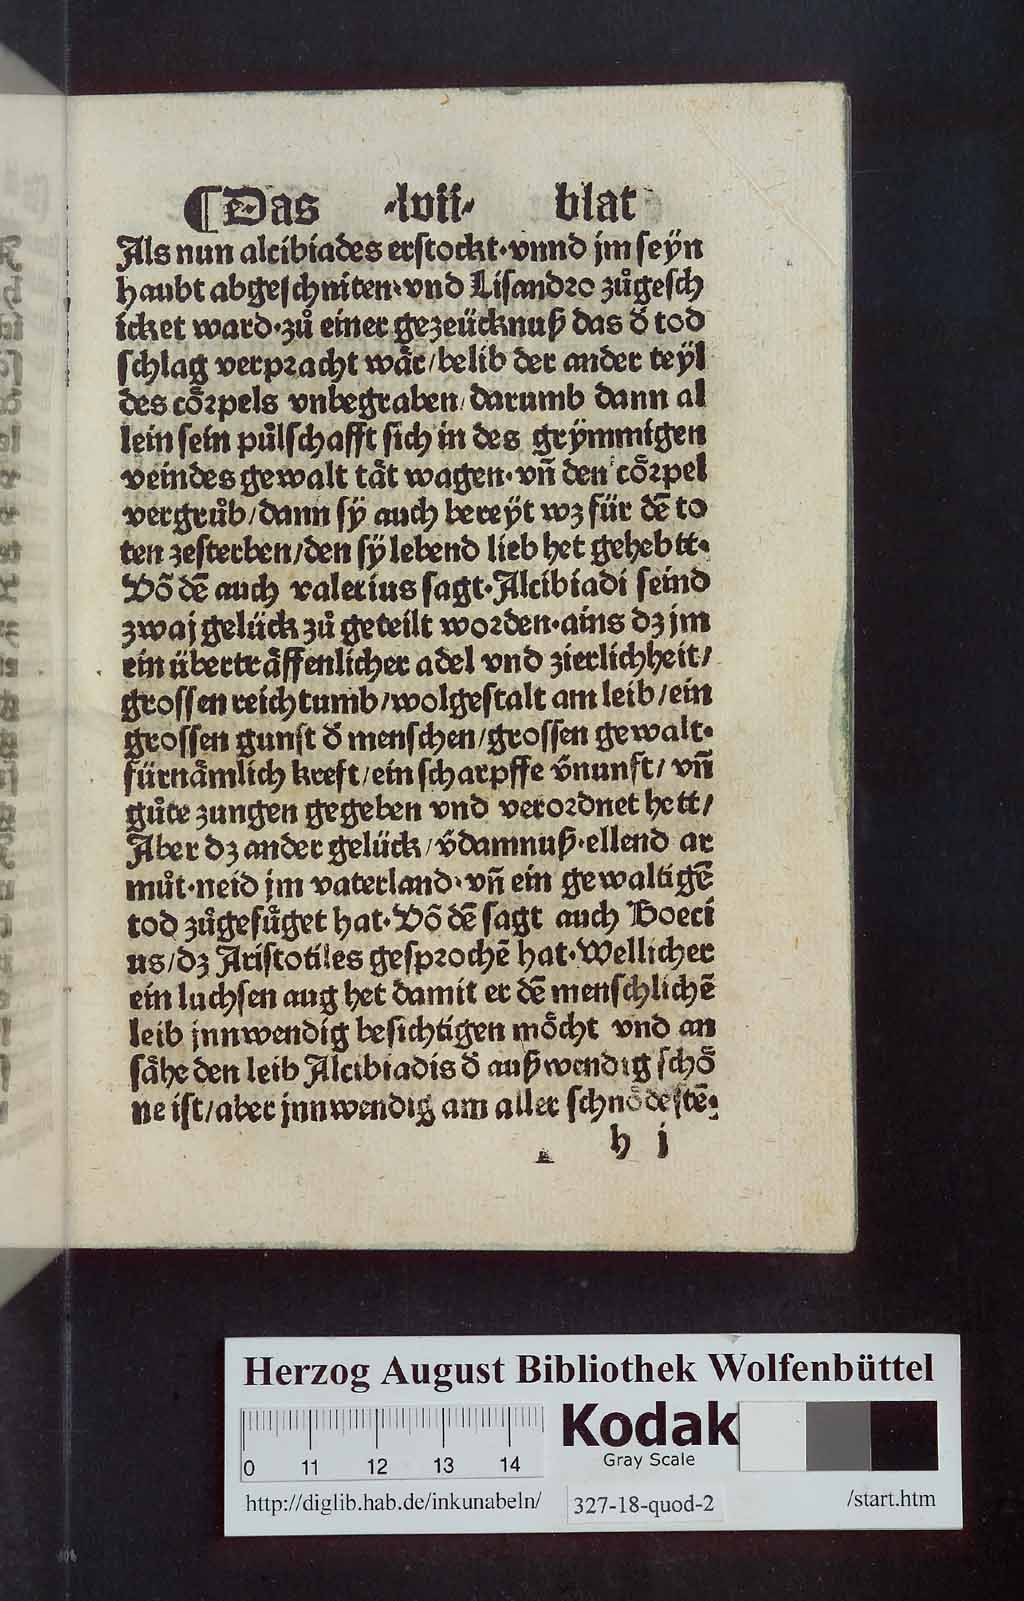 ¶Das ·lvii· blat
Als nun alcibiades erstockt·vnnd jm seÿn
haubt abgeschniten·vnd Lisandro zůgesch
icket ward·zů einer gezeücknuß das d̃ tod
schlag verpracht wår/belib der ander teÿl
des cörpels vnbegraben/darumb dann al
lein sein půlschafft sich in des grÿmmigen
veindes gewalt tåt wagen·vñ den cörpel
vergrůb/dann sÿ auch bereÿt wz für dẽ to
ten zesterben/den sÿ lebend lieb het gehebtt·
Võ dẽ auch valerius sagt·Alcibiadi seind
zwaj gelück zů geteilt worden·ains dz jm
ein überträffenlicher adel vnd zierlichheit/
grossen reichtumb/wolgestalt am leib/ein
grossen gunst d̃ menschen/grossen gewalt·
fürnåmlich kreft/ein scharpffe ṽnunft/vñ
gůte zungen gegeben vnd verordnet hett/
Aber dz ander gelück/ṽdamnuß·ellend ar
můt·neid jm vaterland·vñ ein gewaltigẽ
tod zůgefůget hat·Võ dẽ sagt auch Boeci
us/dz Aristotiles gesprochẽ hat·Wellicher
ein luchsen aug het damit er dẽ menschlichẽ
leib jnnwendig besichtigen möcht vnd an
såhe den leib Alcibiadis d̃ außwendig schö
ne ist/aber jnnwendig am aller schnödestẽ·
h j
Herzog August Bibliothek Wolfenbüttel
0 11 12 13 14
Kodak
Gray Scale
http://diglib.hab.de/inkunabeln/ 327-18-quod-2 /start.htm